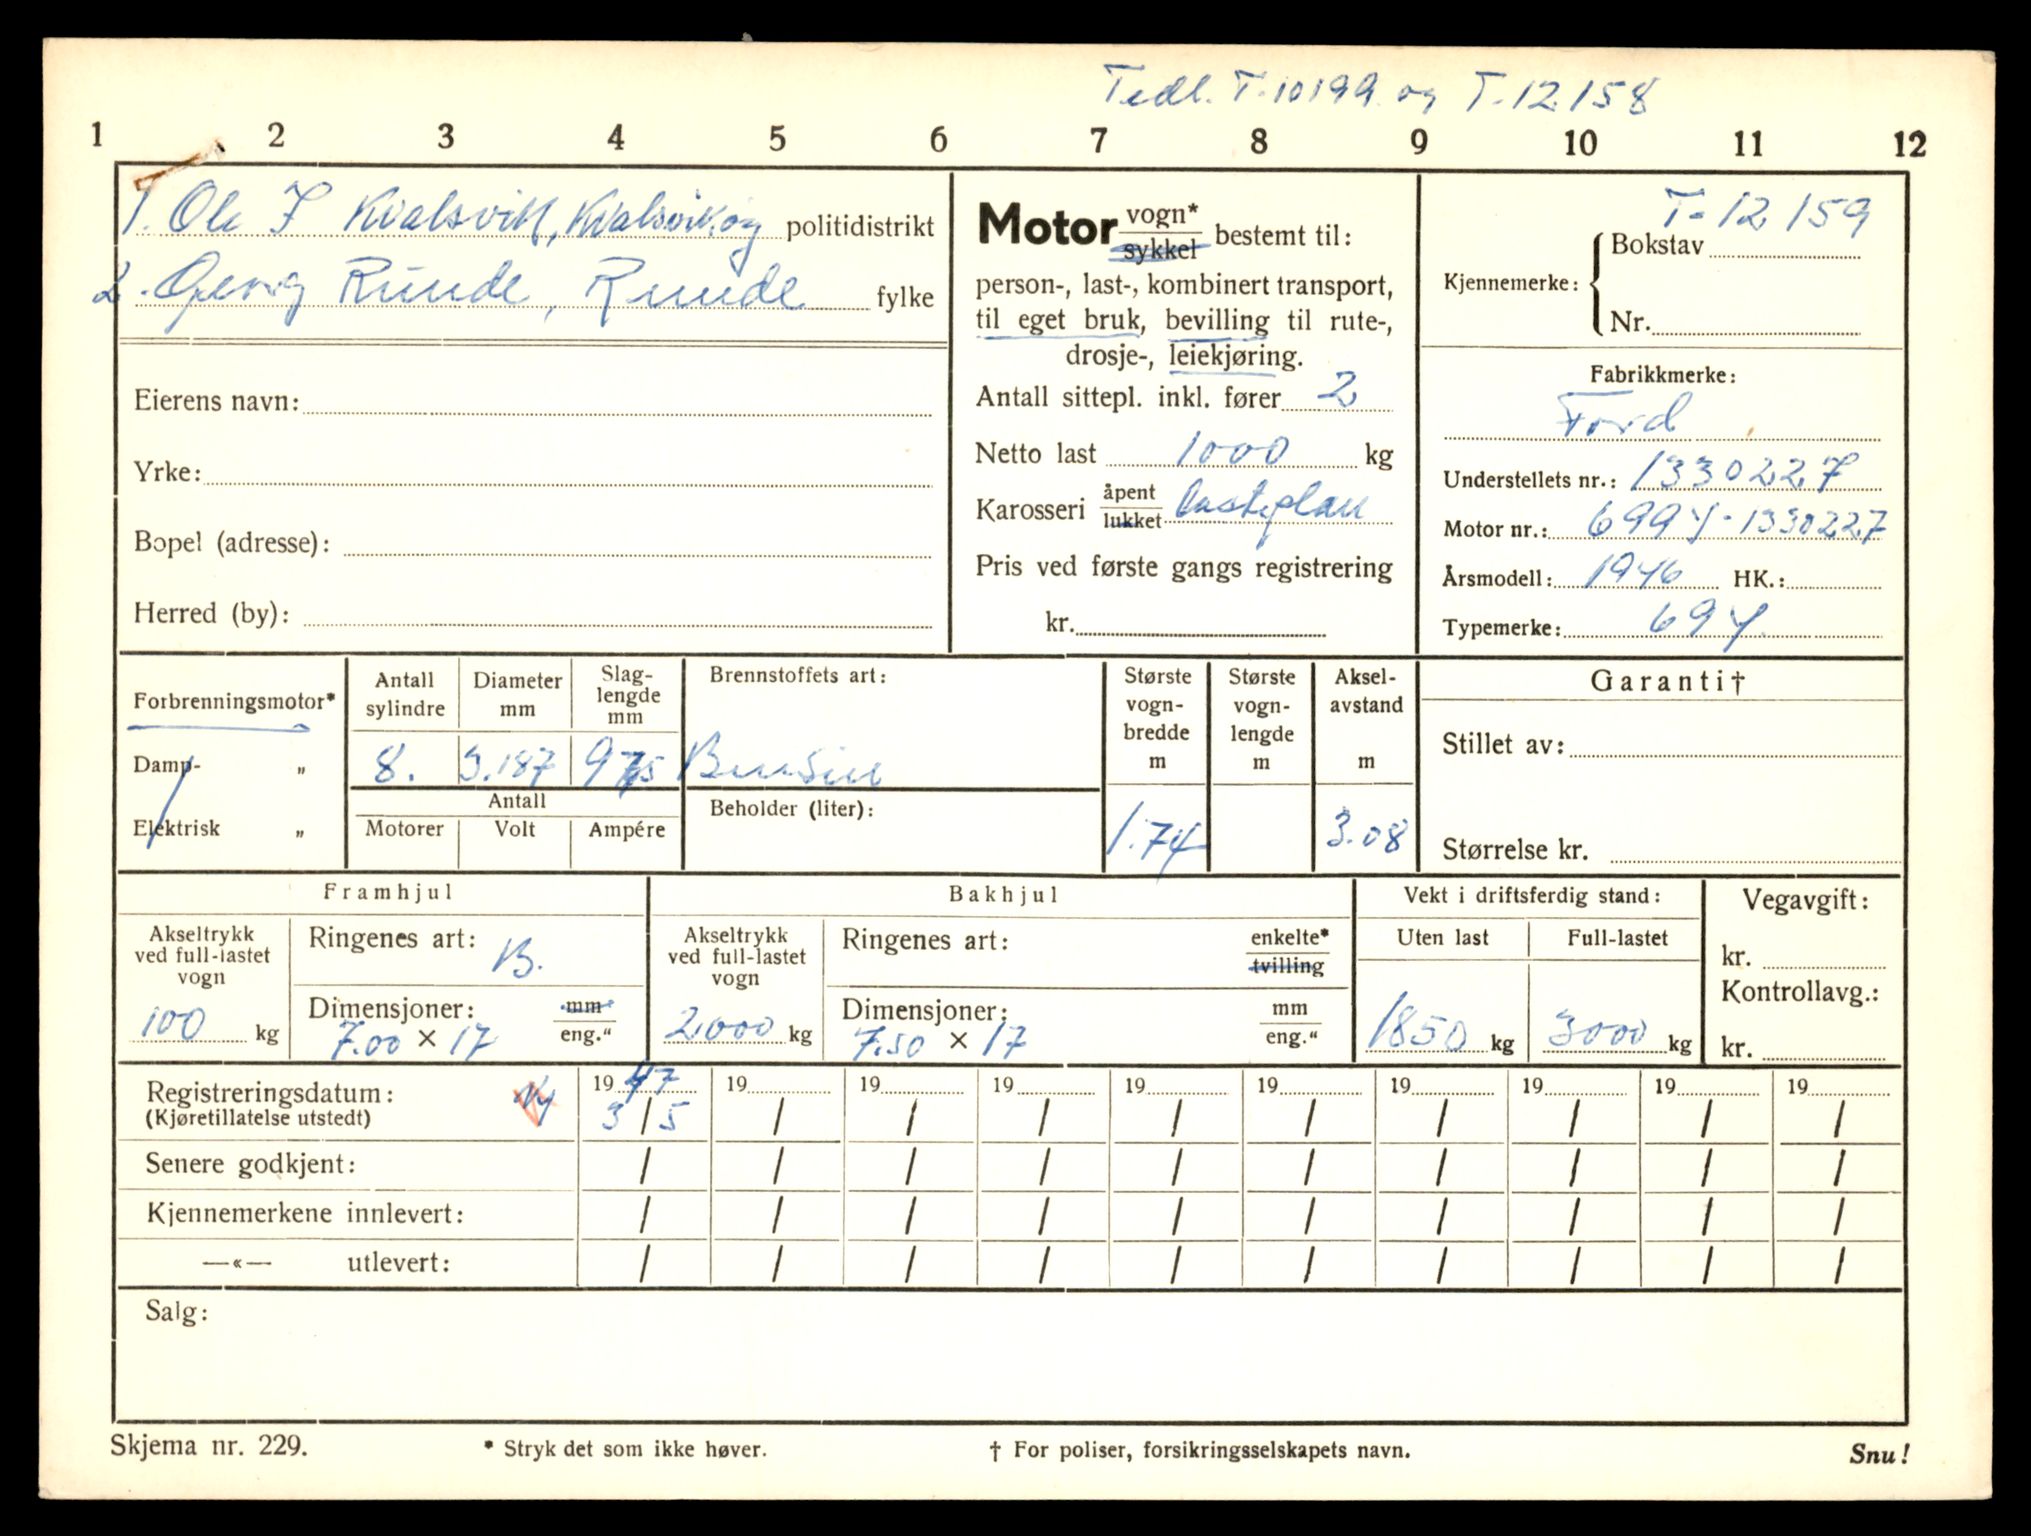 Tidl. T-10199 og T-12158
1 2 3 4 5 6 7 8 9 10 11 12
1. Ole J Kvalsvik, Kvalsvik og politidistrikt
2. Georg Runde, Runde fylke
Eierens navn:
Yrke:
Bopel (adresse):
Herred (by):
Motor vogn* sykkel bestemt til:
person-, last-, kombinert transport,
til eget bruk, bevilling til rute-,
drosje-, leiekjøring.
Antall sittepl. inkl. fører 2
Netto last 1000 kg
Karosseri åpent lukket lasteplan
Pris ved første gangs registrering
kr.
T-12159
Kjennemerke: Bokstav
Nr.
Fabrikkmerke:
Ford
Understellets nr.: 1330227
Motor nr.: 699Y-1330227
Årsmodell: 1946 HK.:
Typemerke: 69Y.
Forbrenningsmotor*
Damp- „
Elektrisk „
Antall sylindre
Diameter mm
Slag-lengde mm
8. 3.187
Antall
Motorer Volt Ampére
Brennstoffets art:
Bensin
Beholder (liter):
Største vogn-bredde m
1.74
Største vogn-lengde m
Aksel-avstand m
3.08
Garanti†
Stillet av:
Størrelse kr.
Framhjul
Akseltrykk ved full-lastet vogn
100 kg
Ringenes art: B.
Dimensjoner: mm eng."
7.00 × 17
Bakhjul
Akseltrykk ved full-lastet vogn
2000 kg
Ringenes art: enkelte* tvilling
Dimensjoner: mm eng."
7.50 × 17
Vekt i driftsferdig stand:
Uten last Full-lastet
1850 kg 3000 kg
Vegavgift:
kr.
Kontrollavg.:
kr.
Registreringsdatum: Ny 1947 19 19 19 19 19 19 19 19 19
(Kjøretillatelse utstedt) 3/5 / / / / / / / / /
Senere godkjent: / / / / / / / / / /
Kjennemerkene innlevert: / / / / / / / / / /
—«— utlevert: / / / / / / / / / /
Salg:
Skjema nr. 229. * Stryk det som ikke høver. † For poliser, forsikringsselskapets navn. Snu!